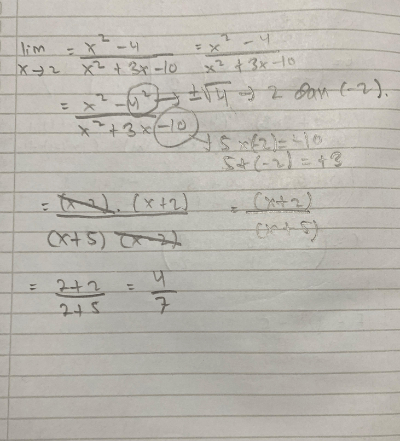 lim x→2 = x² - 4 / x² + 3x - 10 = x² - 4 / x² + 3x - 10
= x² - 4² / x² + 3x - 10 → ±√4 → 2 dan (-2).
→ 5 x (-2) = -10
5 + (-2) = +3
= (x-2) . (x+2) / (x+5) (x-2) = (x+2) / (x+5)
= 2+2 / 2+5 = 4 / 7